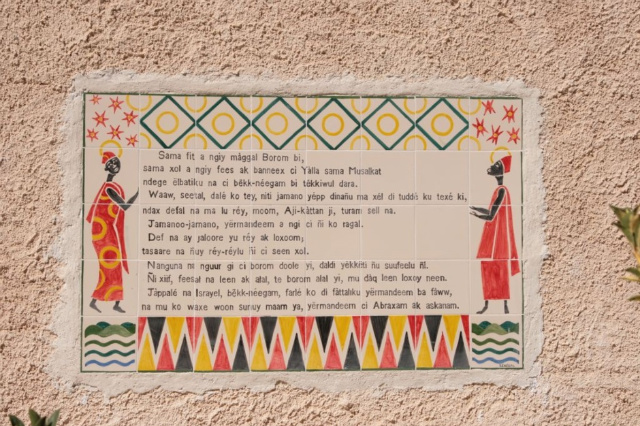 Sama fit a ngiy màggal Borom bi,
sama xol a ngiy fees ak banneex ci Yàlla sama Musalkat
ndege ëlbatiku na ci bëkk-néegam bi tëkkiwul dara.
Waaw, seetal, dalë ko tey, niti jamano yépp dinañu ma xél di tuddé ku texé ki,
ndax defal na ma lu réy, moom, Aji-kàttan ji, turam sell na.
Jamanoo-jamano, yërmandeem a ngi ci ñi ko ragal.
Def na ay jaloore yu réy ak loxoom;
tasaare na ñuy réy-réylu ñi ci seen xol.
Nanguna ni nguur gi ci borom doole yi, daldi yékkëti ñu suufeelu ñi.
Ñi xiif, feesal na leen ak alal, te borom alal yi, mu dàq leen loxoy neen.
Jàppalé na Israyel, bëkk-nèegam, farlé ko di fàttaliku yërmandeem ba fàww,
na mu ko waxe woon suruy maam ya, yërmandeem ci Abraxam ak askanam.